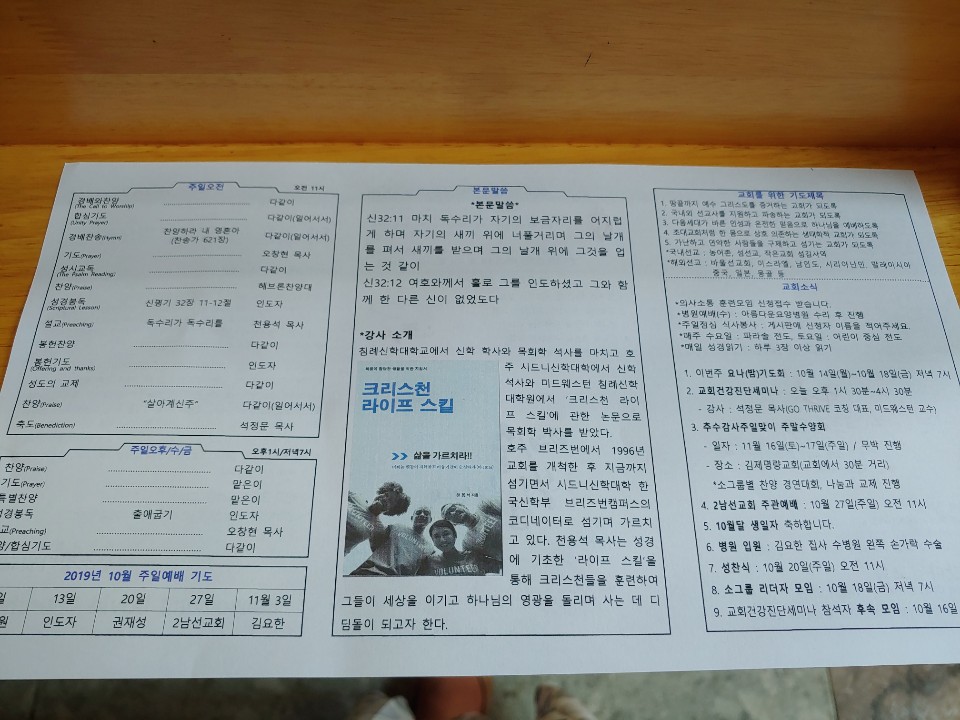 주일오전
오전 11시
경배와찬양 다같이
(The Call to Worship)
합심기도 다같이(일어서서)
(Unity Prayer)
경배찬송(Hymn) 찬양하라 내 영혼아 다같이(일어서서)
(찬송가 621장)
기도(Prayer) 오창현 목사
성시교독 다같이
(The Psalm Reading)
찬양(Praise) 헤브론찬양대
성경봉독 신명기 32장 11-12절 인도자
(Scriptural Lesson)
설교(Preaching) 독수리가 독수리를 전용석 목사
봉헌찬양 다같이
봉헌기도 인도자
(Offering and thanks)
성도의 교제 다같이
찬양(Praise) "살아계신주" 다같이(일어서서)
축도(Benediction) 석정문 목사
주일오후/수/금
오후1시/저녁7시
찬양(Praise) 다같이
기도(Prayer) 맡은이
특별찬양 맡은이
성경봉독 출애굽기 인도자
교(Preaching) 오창현 목사
양/합심기도 다같이
2019년 10월 주일예배 기도
일 13일 20일 27일 11월 3일
원 인도자 권재성 2남선교회 김요한
본문말씀
*본문말씀*
신32:11 마치 독수리가 자기의 보금자리를 어지럽
게 하며 자기의 새끼 위에 너풀거리며 그의 날개
를 펴서 새끼를 받으며 그의 날개 위에 그것을 업
는 것 같이
신32:12 여호와께서 홀로 그를 인도하셨고 그와 함
께 한 다른 신이 없었도다
*강사 소개
침례신학대학교에서 신학 학사와 목회학 석사를 마치고 호
주 시드니신학대학에서 신학
석사와 미드웨스턴 침례신학
대학원에서 '크리스천 라이
프 스킬'에 관한 논문으로
목회학 박사를 받았다.
호주 브리즈번에서 1996년
교회를 개척한 후 지금까지
섬기면서 시드니신학대학 한
국신학부 브리즈번캠퍼스의
코디네이터로 섬기며 가르치
고 있다. 전용석 목사는 성경
에 기초한 '라이프 스킬'을
통해 크리스천들을 훈련하여
그들이 세상을 이기고 하나님의 영광을 돌리며 사는 데 디
딤돌이 되고자 한다.
크리스천
라이프 스킬
>> 삶을 가르치라!!
VOLUNTEER
교회를 위한 기도제목
1. 땅끝까지 예수 그리스도를 증거하는 교회가 되도록
2. 국내외 선교사를 지원하고 파송하는 교회가 되도록
3. 다음세대가 바른 인성과 온전한 믿음으로 하나님을 예배하도록
4. 초대교회처럼 한 몸으로 상호 의존하는 생태화적 교회가 되도록
5. 가난하고 연약한 사람들을 구제하고 섬기는 교회가 되도록
*국내선교 : 농어촌, 섬선교, 작은교회 섬김사역
*해외선교 : 바울선교회, 이스라엘, 남인도, 시리아난민, 말레이시아
중국, 일본, 몽골 등
교회소식
*의사소통 훈련모임 신청접수 받습니다.
*병원예배(수) : 아름다운요양병원 수리 후 진행
*주일점심 식사봉사 : 게시판에 신청자 이름을 적어주세요.
*매주 수요일 : 파라솔 전도, 토요일 : 어린이 중심 전도
*매일 성경읽기 : 하루 3장 이상 읽기
1. 이번주 요나(밤)기도회 : 10월 14일(월)~10월 18일(금) 저녁 7시
2. 교회건강진단세미나 : 오늘 오후 1시 30분~4시 30분
- 강사 : 석정문 목사(GO THRIVE 코칭 대표, 미드웨스턴 교수)
3. 추수감사주일맞이 주말수양회
- 일자 : 11월 16일(토)~17일(주일) / 무박 진행
- 장소 : 김제명량교회(교회에서 30분 거리)
*소그룹별 찬양 경연대회, 나눔과 교제 진행
4. 2남선교회 주관예배 : 10월 27일(주일) 오전 11시
5. 10월달 생일자 축하합니다.
6. 병원 입원 : 김요한 집사 수병원 왼쪽 손가락 수술
7. 성찬식 : 10월 20일(주일) 오전 11시
8. 소그룹 리더자 모임 : 10월 18일(금) 저녁 7시
9. 교회건강진단세미나 참석자 후속 모임 : 10월 16일